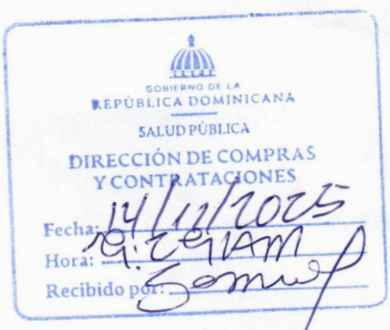 GOBIERNO DE LA
REPÚBLICA DOMINICANA
SALUD PÚBLICA
DIRECCIÓN DE COMPRAS
Y CONTRATACIONES
Fecha: 14/11/2025
Hora: 9:29 AM
Recibido por: Samuel